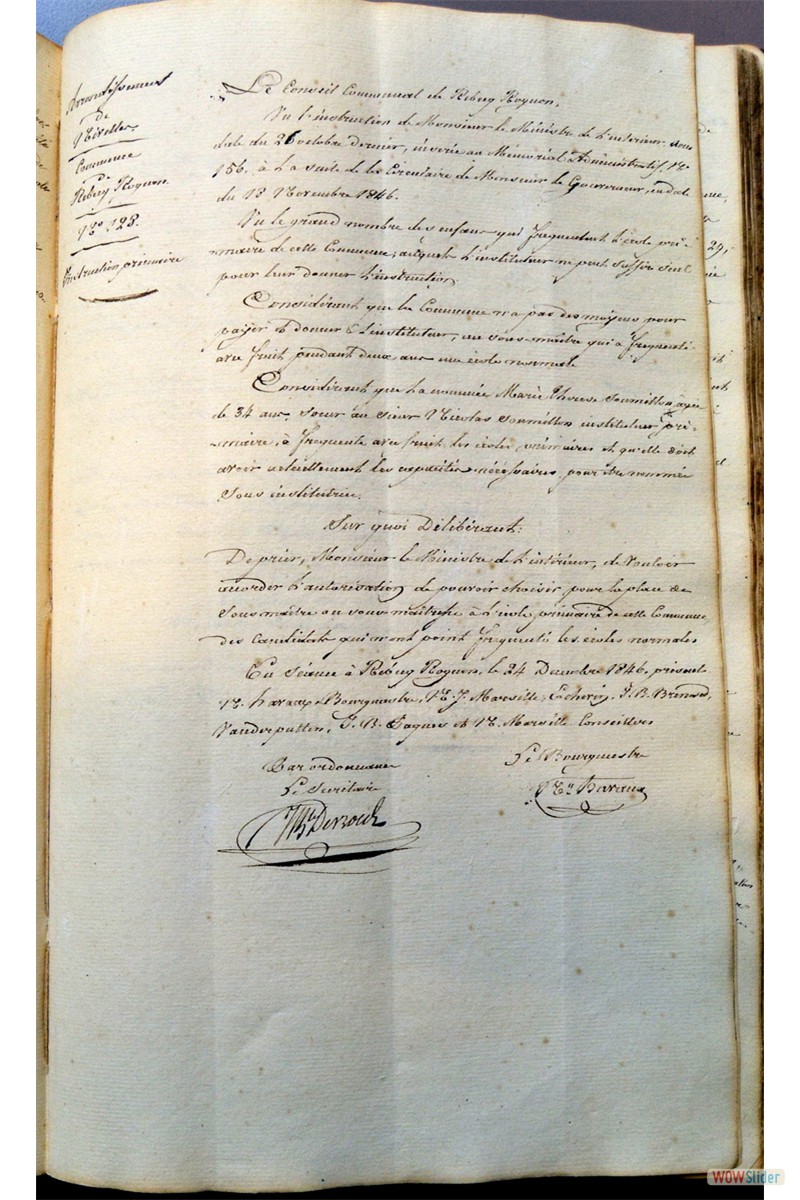 Arrondissement
de
Nivelles.
Commune
de
Rebecq Rognon
N° 128.
Instruction primaire
Le Conseil Communal de Rebecq Rognon,
Vu l'instruction de Monsieur le Ministre de l'intérieur sous
date du 26 octobre dernier, inserée au Mémorial Administratif, N°
156, à la suite de la Circulaire de Monsieur le Gouverneur, en date
du 13 Novembre 1846.
Vu le grand nombre des enfans qui frequentent l'école pri-
maire de cette Commune, auquels l'instituteur ne peut suffire seul
pour leur donner l'instruction
Considérant que la Commune n'a pas des moyens pour
payer et donner à l'instituteur, un sous-maitre qui a frequenté
avec fruit pendant deux ans une école normale
Considérant que la nommée Marie Therese Soumillon agée
de 34 ans, soeur au sieur Nicolas Soumillon instituteur pri-
maire, à frequenté avec fruit les écoles primaires et qu'elle doit
avoir actuellement les capacités nécessaires pour être nommée
Sous institutrice.
Sur quoi Délibérant:
De prier, Monsieur le Ministre de l'intérieur, de vouloir
accorder l'autorisation de pouvoir choisir pour la place de
Sous maitre ou sous-maitresse à l'école primaire de cette Commune
des Candidats qui n'ont point frequenté les écoles normales
En séance à Rebecq Rognon, le 24 Decembre 1846, présents
N. Bourgmestre, N. J. Marville, Echevin, J. B.
Vanderputten, J. B. Paques et N. Marville Conseillers
Par ordonnance
Le Secrétaire
Le Bourgmestre
29,
WOWSlider